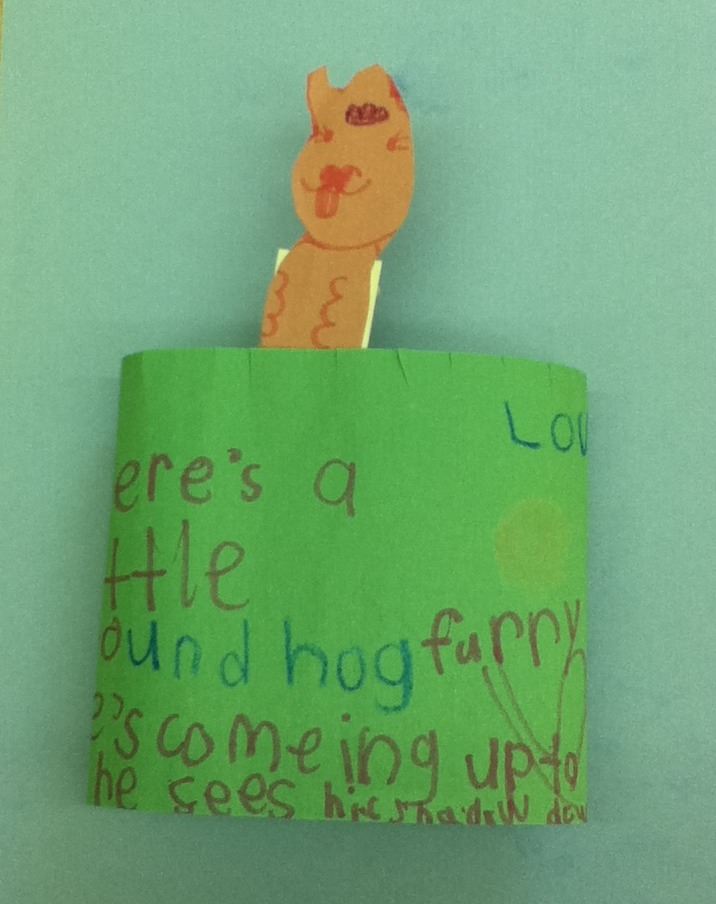 Lou
ere's a
ttle
ound hog furry
e's comeing up to
he sees his shadow dow